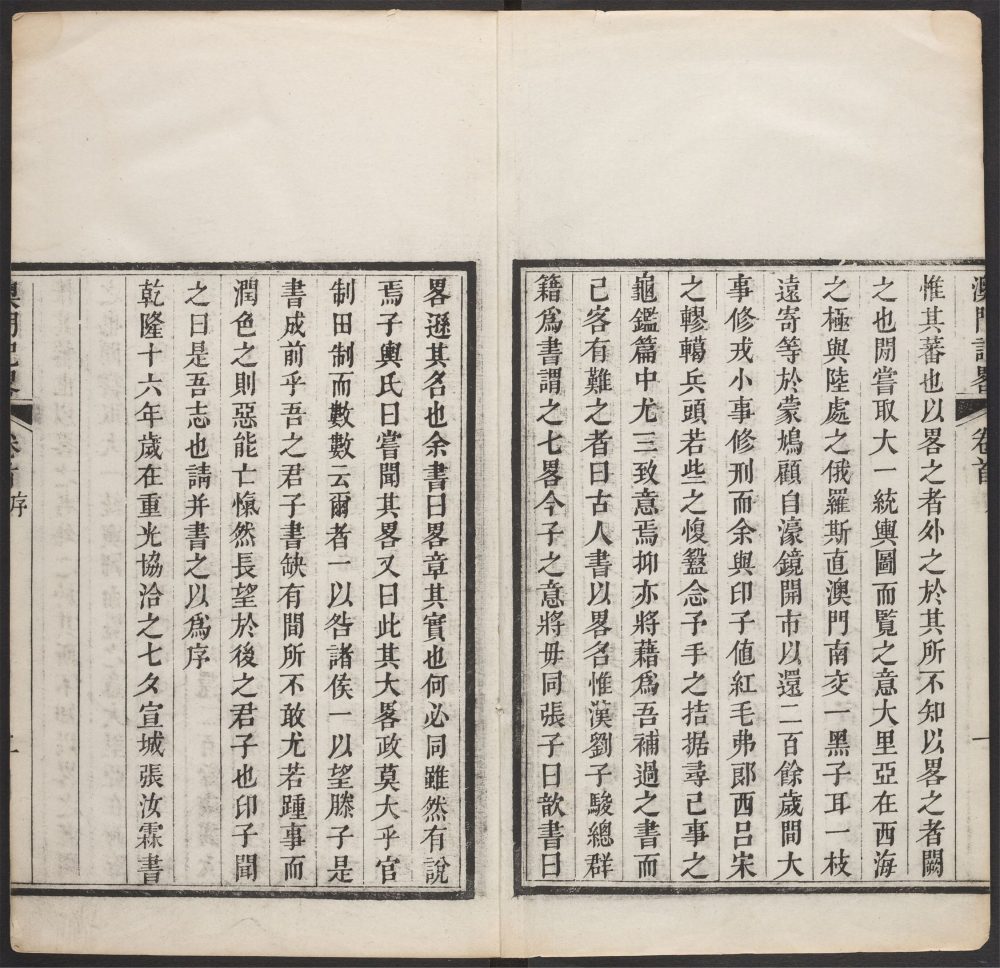 惟其蕃也以畧之者外之於其所不知以畧之者闕
之也閒嘗取大一統輿圖而覽之意大里亞在西海
之極與陸處之俄羅斯直澳門南交一黑子耳一枝
遠寄等於蒙鳩顧自濠鏡開市以還二百餘歲間大
事修戎小事修刑而余與印子値紅毛弗郎西呂宋
之轇轕兵頭若些之愎盭念予手之拮据尋已事之
龜鑑篇中尤三致意焉抑亦將藉爲吾補過之書而
已客有難之者曰古人書以畧名惟漢劉子駿總群
籍爲書謂之七畧今子之意將毋同張子曰歆書曰
畧遜其名也余書曰畧章其實也何必同雖然有說
焉子輿氏曰嘗聞其畧又曰此其大畧政莫大乎官
制田制而數數云爾者一以咎諸侯一以望滕子是
書成前乎吾之君子書缺有間所不敢尤若踵事而
潤色之則惡能亡愾然長望於後之君子也印子聞
之曰是吾志也請并書之以爲序
乾隆十六年歲在重光協洽之七夕宣城張汝霖書
卷首
序
二